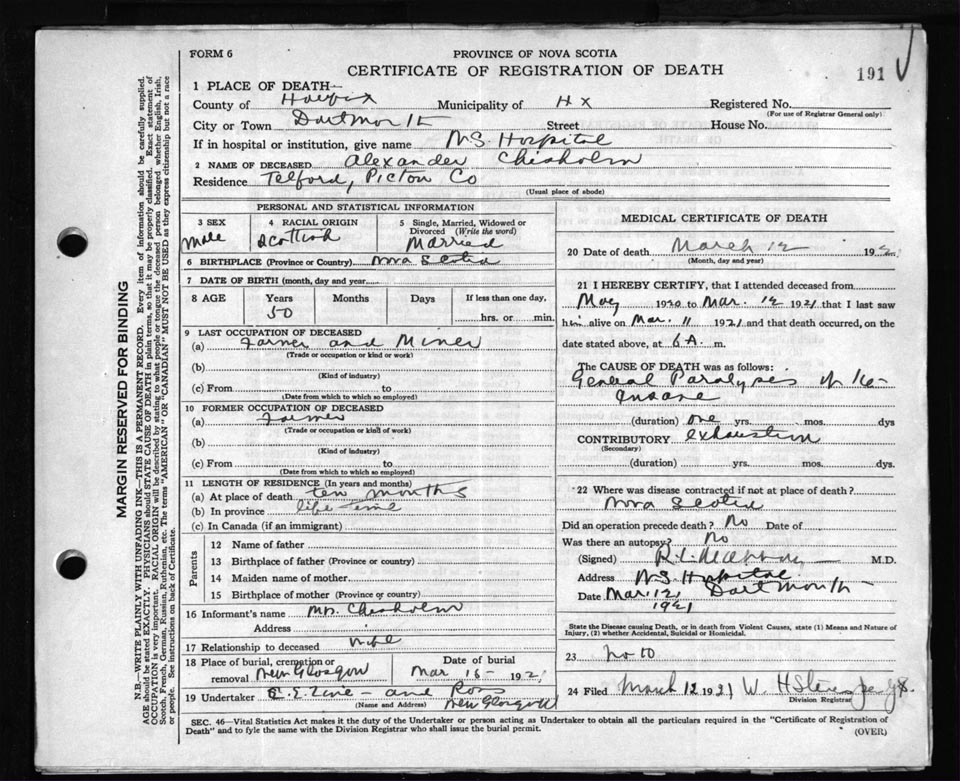 FORM 6
PROVINCE OF NOVA SCOTIA
CERTIFICATE OF REGISTRATION OF DEATH
191
1 PLACE OF DEATH—
County of Halifax Municipality of Hx Registered No.
(For use of Registrar General only)
City or Town Dartmouth Street House No.
If in hospital or institution, give name N.S. Hospital
2 NAME OF DECEASED Alexander Chisholm
Residence Telford, Pictou Co
(Usual place of abode)
PERSONAL AND STATISTICAL INFORMATION
3 SEX Male
4 RACIAL ORIGIN Scottish
5 Single, Married, Widowed or Divorced (Write the word) Married
6 BIRTHPLACE (Province or Country) Nova Scotia
7 DATE OF BIRTH (month, day and year)
8 AGE Years 50 Months Days If less than one day, hrs. or min.
9 LAST OCCUPATION OF DECEASED
(a) Farmer and Miner
(Trade or occupation or kind or work)
(b)
(Kind of industry)
(c) From to
(Date from which to which so employed)
10 FORMER OCCUPATION OF DECEASED
(a) Farmer
(Trade or occupation or kind of work)
(b)
(Kind of industry)
(c) From to
(Date from which to which so employed)
11 LENGTH OF RESIDENCE (In years and months)
(a) At place of death ten months
(b) In province life time
(c) In Canada (if an immigrant)
Parents
12 Name of father
13 Birthplace of father (Province or country)
14 Maiden name of mother
15 Birthplace of mother (Province or country)
16 Informant's name Mrs. Chisholm
Address
17 Relationship to deceased wife
18 Place of burial, cremation or removal New Glasgow
Date of burial Mar 16 - 1921
19 Undertaker and New Glasgow
(Name and Address)
MEDICAL CERTIFICATE OF DEATH
20 Date of death March 12 192
(Month, day and year)
21 I HEREBY CERTIFY, that I attended deceased from
May 1920 to Mar. 12 1921 that I last saw
him alive on Mar. 11 1921 and that death occurred, on the
date stated above, at 6 A. m.
The CAUSE OF DEATH was as follows:
General Paralyses of the
Insane
(duration) one yrs. mos. dys
CONTRIBUTORY exhaustion
(Secondary)
(duration) yrs. mos. dys.
22 Where was disease contracted if not at place of death?
Nova Scotia
Did an operation precede death? No Date of
Was there an autopsy? No
(Signed) M.D.
Address N.S. Hospital
Date Mar. 12, Dartmouth
1921
State the Disease causing Death, or in death from Violent Causes, state (1) Means and Nature of
Injury, (2) whether Accidental, Suicidal or Homicidal.
23
24 Filed March 12 1921 W. H.
Division Registrar
SEC. 46—Vital Statistics Act makes it the duty of the Undertaker or person acting as Undertaker to obtain all the particulars required in the "Certificate of Registration of
Death" and to fyle the same with the Division Registrar who shall issue the burial permit.
(OVER)
MARGIN RESERVED FOR BINDING
N.B.—WRITE PLAINLY WITH UNFADING INK—THIS IS A PERMANENT RECORD. Every item of information should be carefully supplied.
AGE should be stated EXACTLY. PHYSICIANS should STATE CAUSE OF DEATH in plain terms, so that it may be properly classified. Exact statement of
OCCUPATION is very important. RACIAL ORIGIN will be described by stating to what people or tongue the deceased person belonged whether English, Irish,
Scotch, French, German, Russian, Ruthenian, etc. The terms "AMERICAN" OR "CANADIAN" MUST NOT BE USED as they express citizenship but not a race
or people. See instructions on back of Certificate.